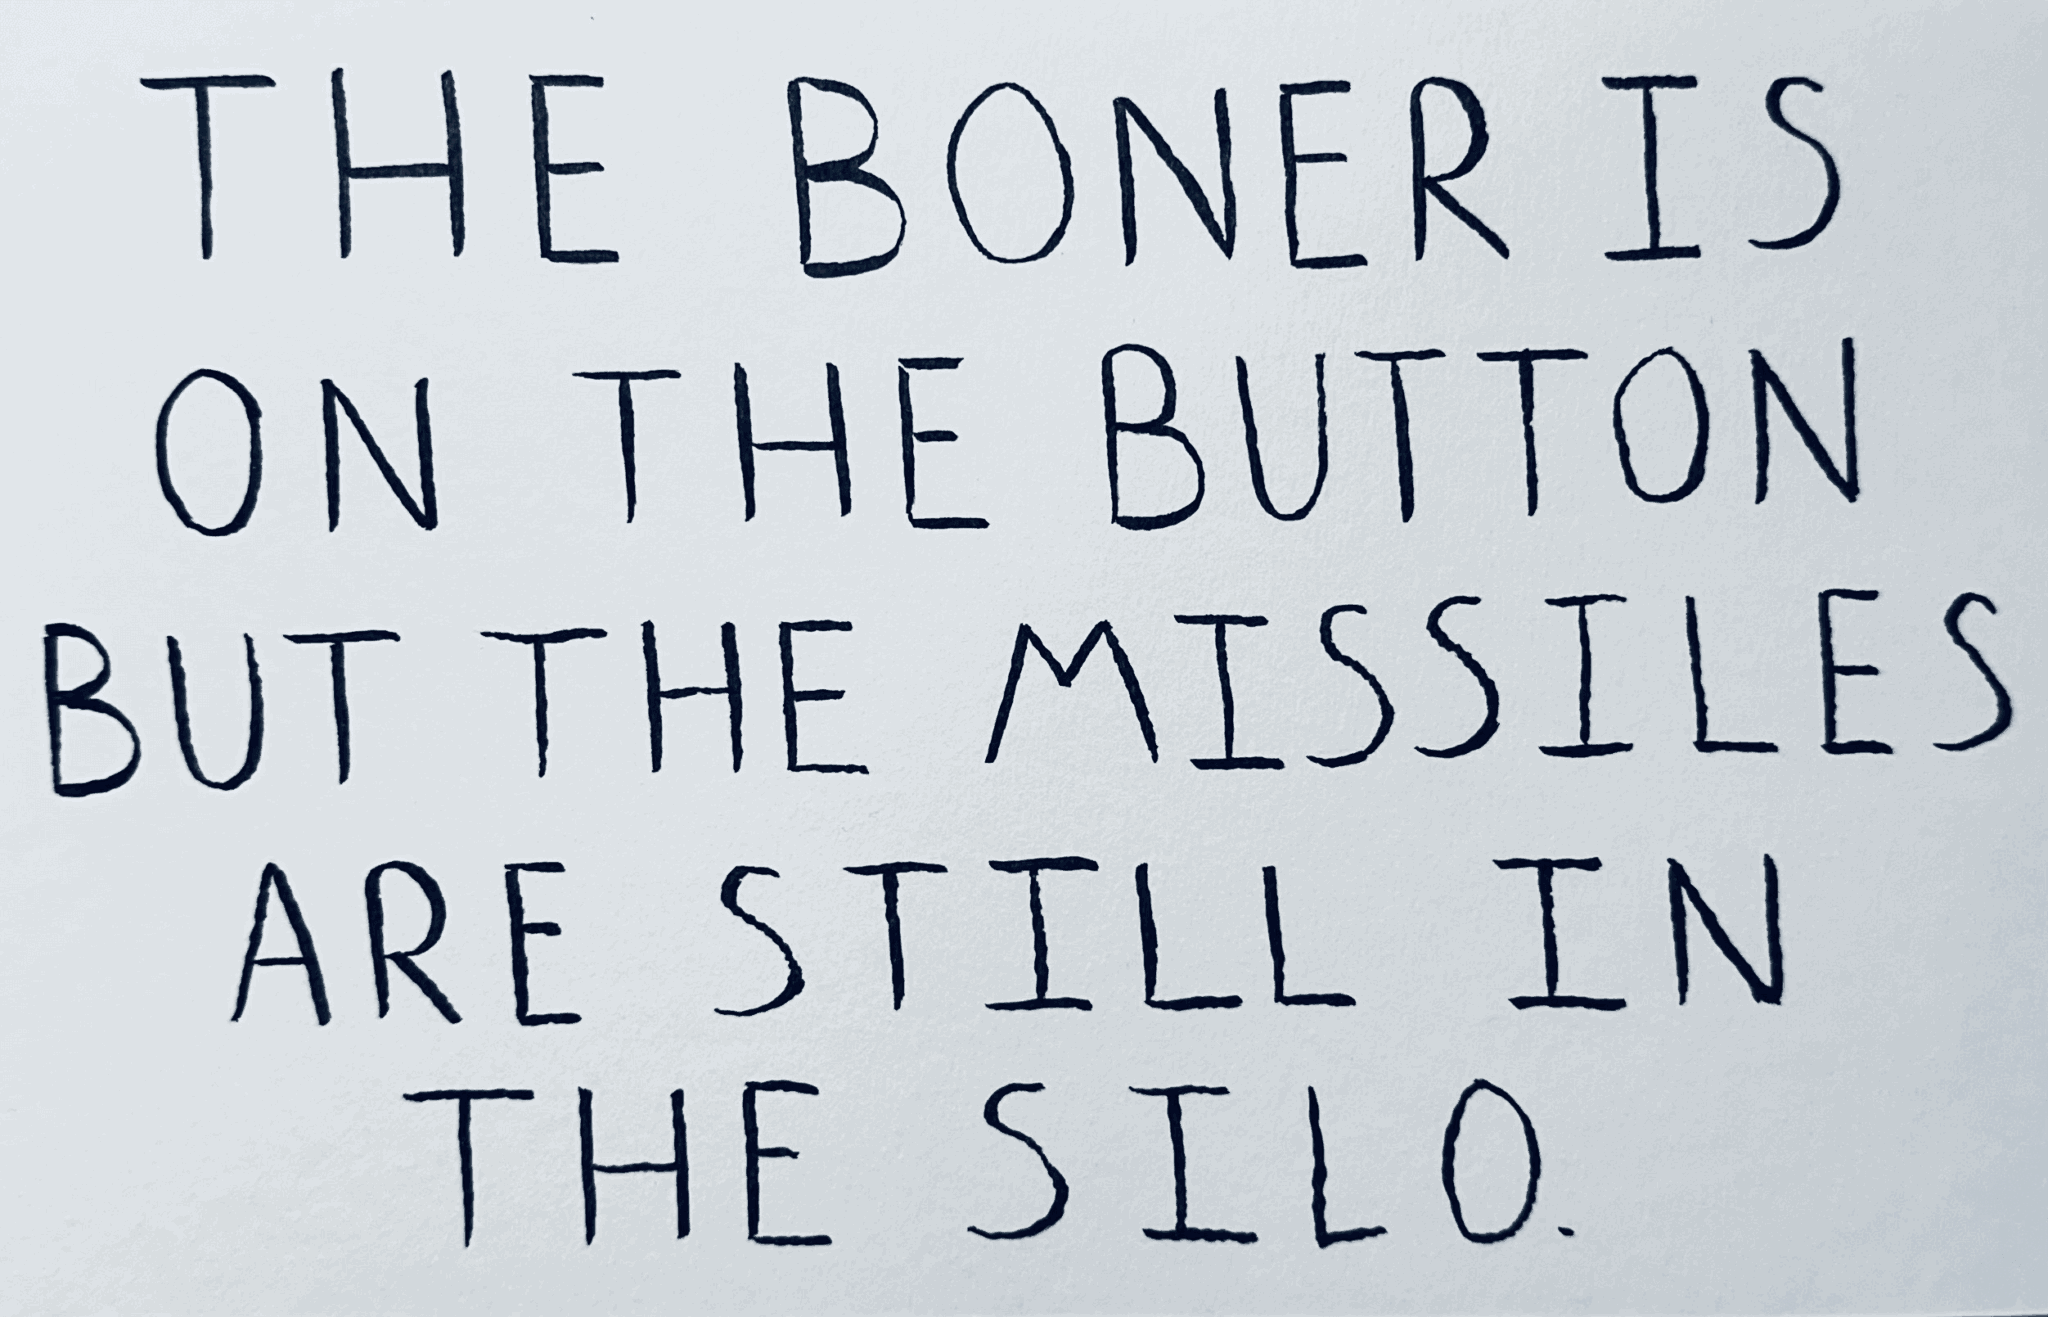 THE BONER IS
ON THE BUTTON
BUT THE MISSILES
ARE STILL IN
THE SILO.